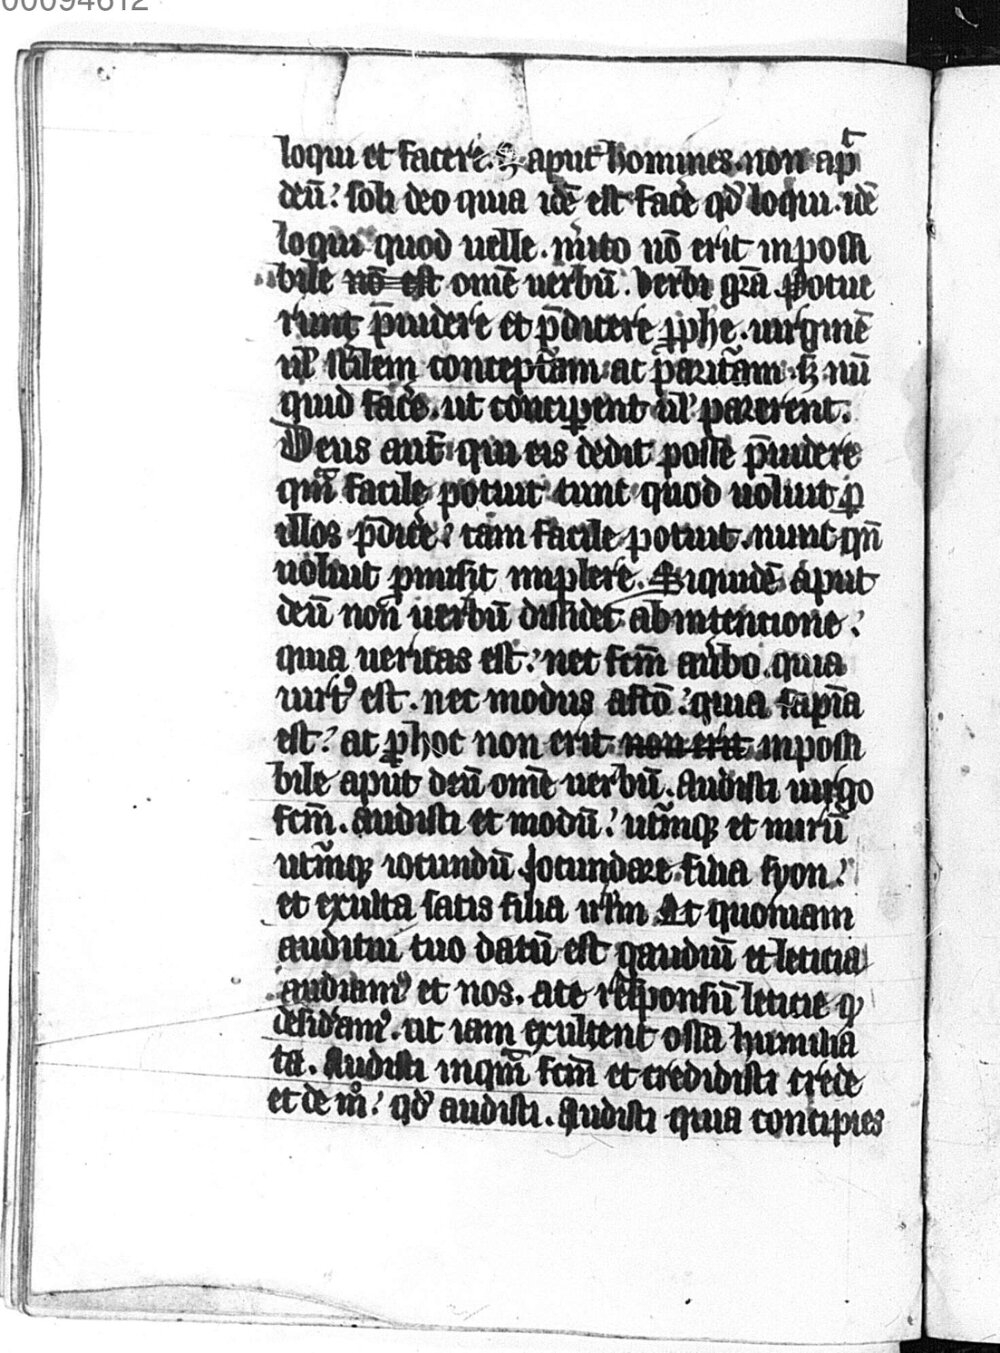 00094612
loqui et facere. s; aput homines. non ap̄t
deū? soli deo quia idē est facē qd̄ loqui. idē
loqui quod uelle. mito nō erit inpossi
bile nō est omē uerbū. Verbi grā. Potue
runt p̄uidere et p̄dicere ꝓphe. uirginē
ul̓ st̓ilem concept̄am ac parit̄am. s; nū
quid facē. ut concipent ul̓ parerent.
Deus aut̄ qui eis dedit posse p̄uidere
qm̄ facile potuit tunc quod uoluit ꝑ
illos p̄dicē? tam facile potuit. nunc qn̄
uoluit pmisit implere. Siquidē aput
deū non uerbū dissidet ab intencione?
quia ueritas est? nec fcm̄ a ubo. quia
uirt᾽ est. nec modus a fcō? quia sapīa
est? ac ꝑ hoc non erit non erit inpossi
bile aput deū omē uerbū. Audisti uirgo
fcm̄. audisti et modū? utm̄q; et mirū
utm̄q; iocundū. Jocundare filia syon?
et exulta satis filia irl̄m Et quoniam
auditui tuo datū est gaudiū et leticia
audiam᾽ et nos. a te respōnsū leticie q̄
desidam᾽. ut iam exultent ossa humilia
ta. Audisti inqm̄ fcm̄ et credidisti crede
et de m̊? qd̄ audisti. Audisti quia concipies